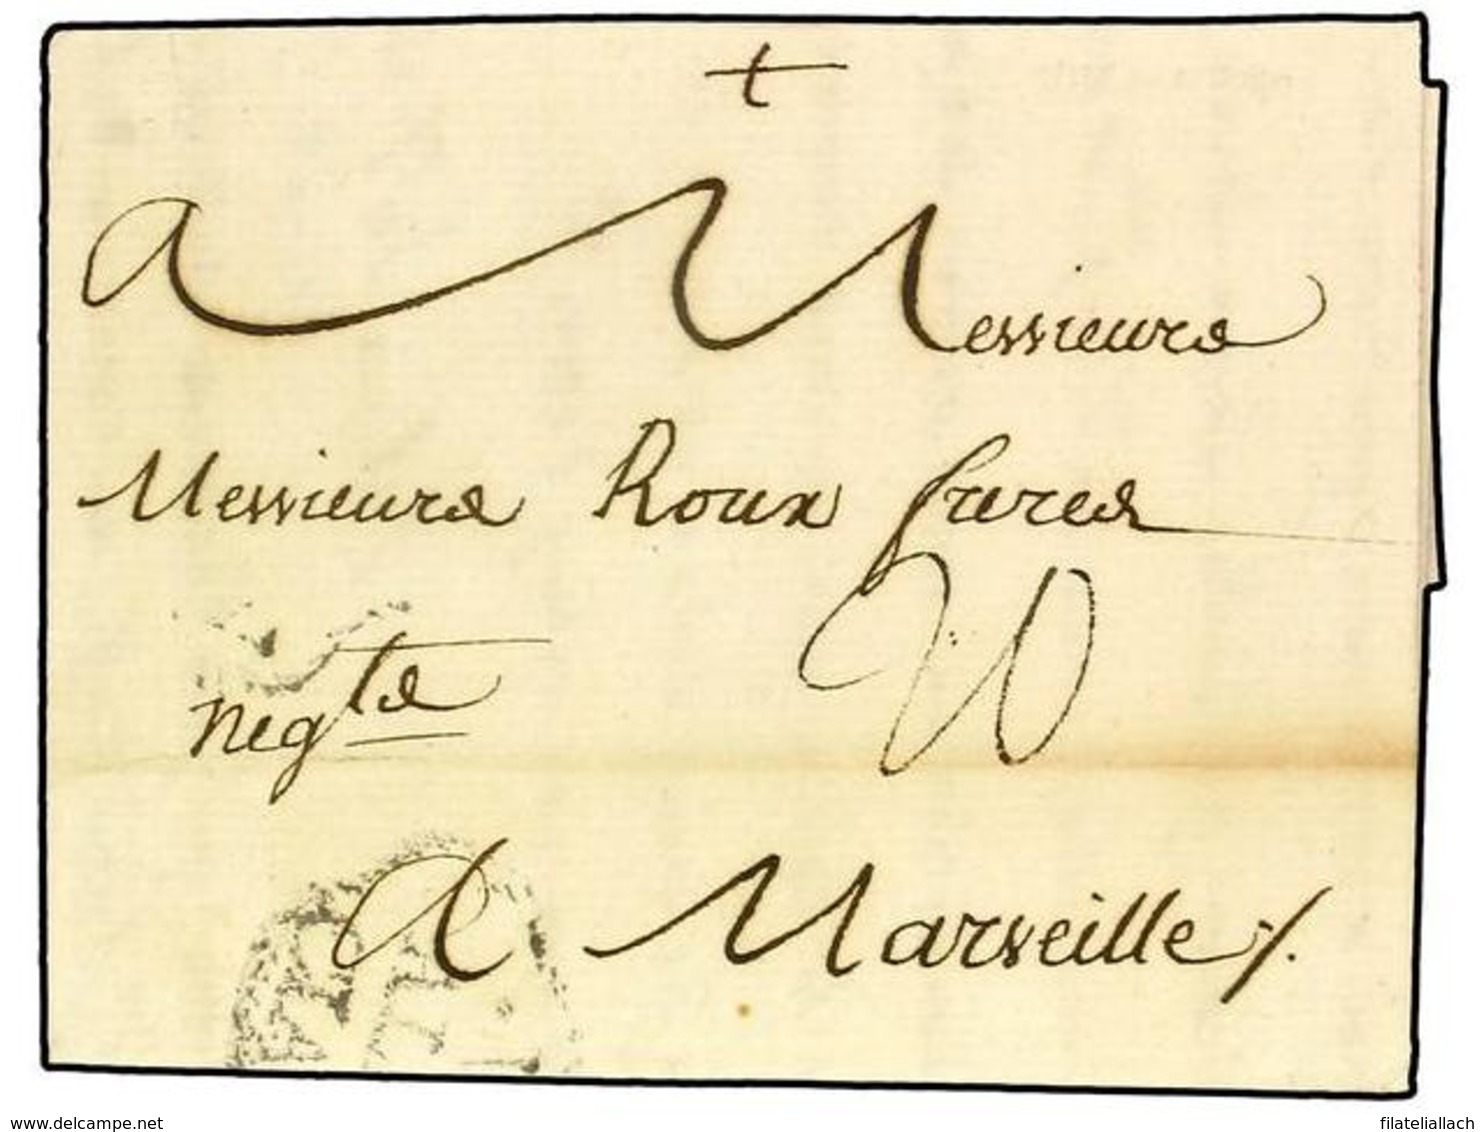 +
a Messieurs
Messieurs Roux freres
negts
A Marseille /.
www.delcampe.net
filateliallach